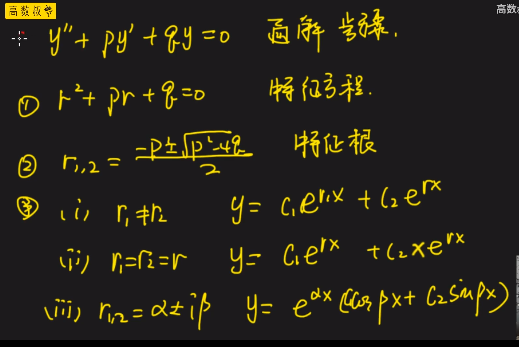 高数叔
高数
y'' + py' + qy = 0 通解步骤.
① r² + pr + q = 0 特征方程.
② r₁,₂ = (-p ± √(p² - 4q)) / 2 特征根
③ (i) r₁ ≠ r₂ y = C₁e^{r₁x} + C₂e^{rx}
(ii) r₁ = r₂ = r y = C₁e^{rx} + C₂xe^{rx}
(iii) r₁,₂ = α ± iβ y = e^{αx}(C₁cosβx + C₂sinβx)